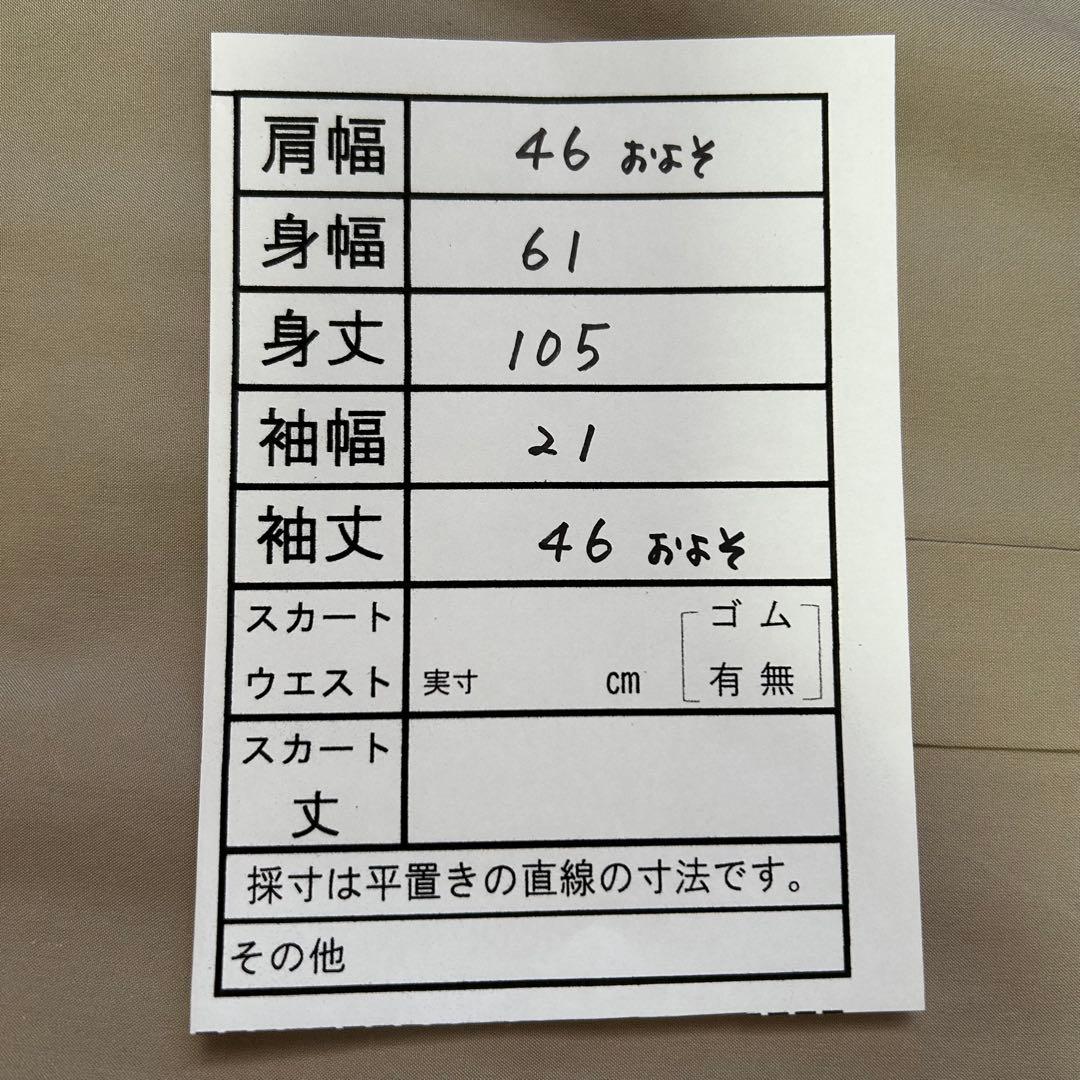 肩幅 46 およそ
身幅 61
身丈 105
袖幅 21
袖丈 46 およそ
スカート ゴム
ウエスト 実寸 cm 有 無
スカート
丈
採寸は平置きの直線の寸法です。
その他